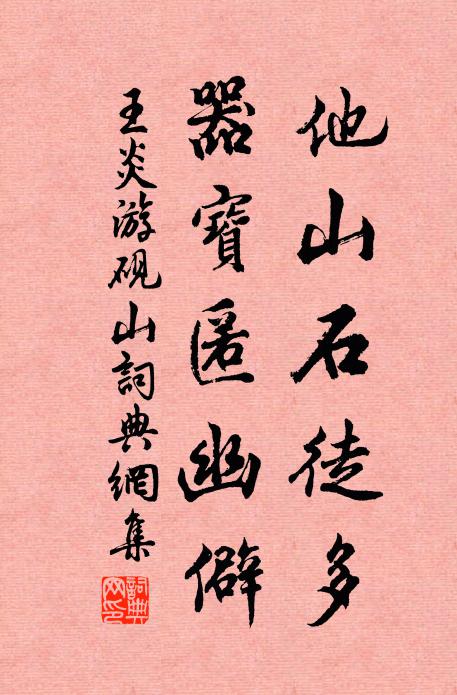 他山石徒多
器寶匿幽僻
王炎游砚山詞典網集
詞典網印